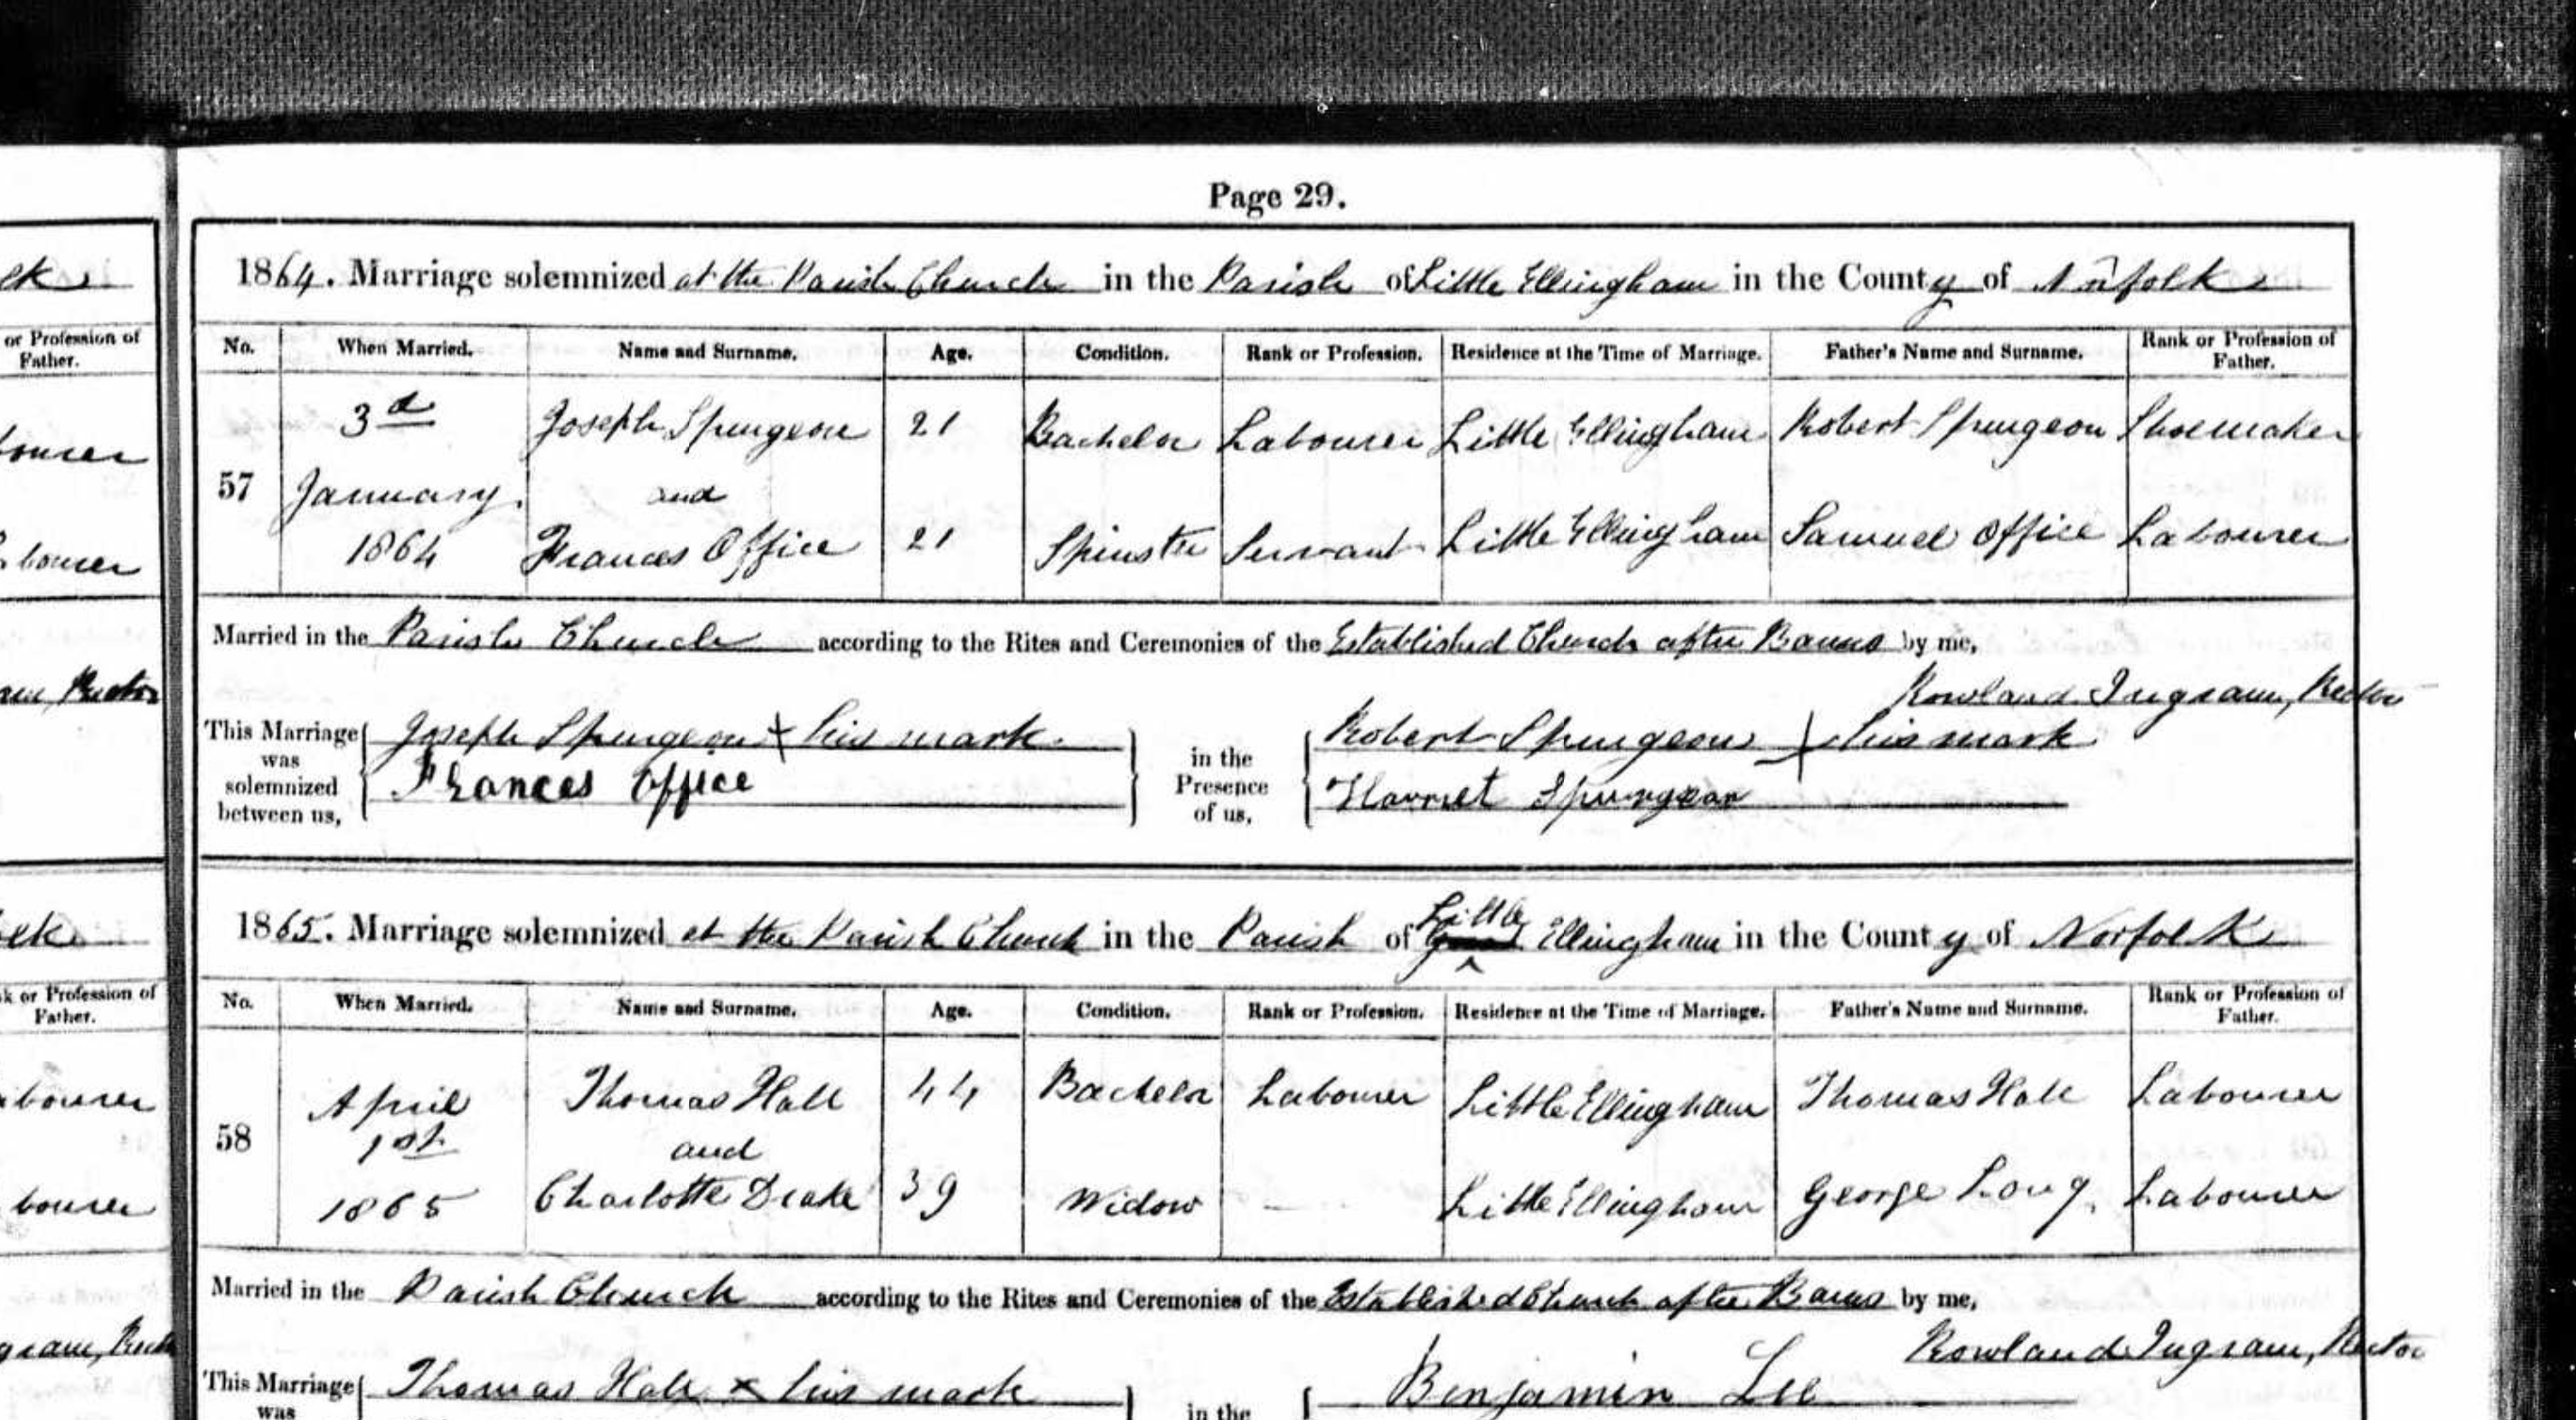 Page 29.
1864. Marriage solemnized at the Parish Church in the Parish of Little Ellingham in the County of Norfolk
No. When Married. Name and Surname. Age. Condition. Rank or Profession. Residence at the Time of Marriage. Father's Name and Surname. Rank or Profession of Father.
3d Joseph Spurgeon 21 Bachelor Labourer Little Ellingham Robert Spurgeon Shoemaker
57 January and
1864 Frances Office 21 Spinster Servant Little Ellingham Samuel Office Labourer
Married in the Parish Church according to the Rites and Ceremonies of the Established Church after Banns by me,
Rowland Ingram, Rector
This Marriage was solemnized between us, Joseph Spurgeon x his mark in the Presence of us, Robert Spurgeon x his mark
Frances Office Harriet Spurgeon
1865. Marriage solemnized at the Parish Church in the Parish of Little Ellingham in the County of Norfolk
No. When Married. Name and Surname. Age. Condition. Rank or Profession. Residence at the Time of Marriage. Father's Name and Surname. Rank or Profession of Father.
April Thomas Hall 44 Bachelor Labourer Little Ellingham Thomas Hall Labourer
58 1st and
1865 Charlotte Drake 39 Widow — Little Ellingham George Long. Labourer
Married in the Parish Church according to the Rites and Ceremonies of the Established Church after Banns by me,
Rowland Ingram, Rector
This Marriage was Thomas Hall x his mark in the Benjamin Lee
or Profession of
Father.
bourer
Rector
k or Profession of
Father.
bourer
bourer